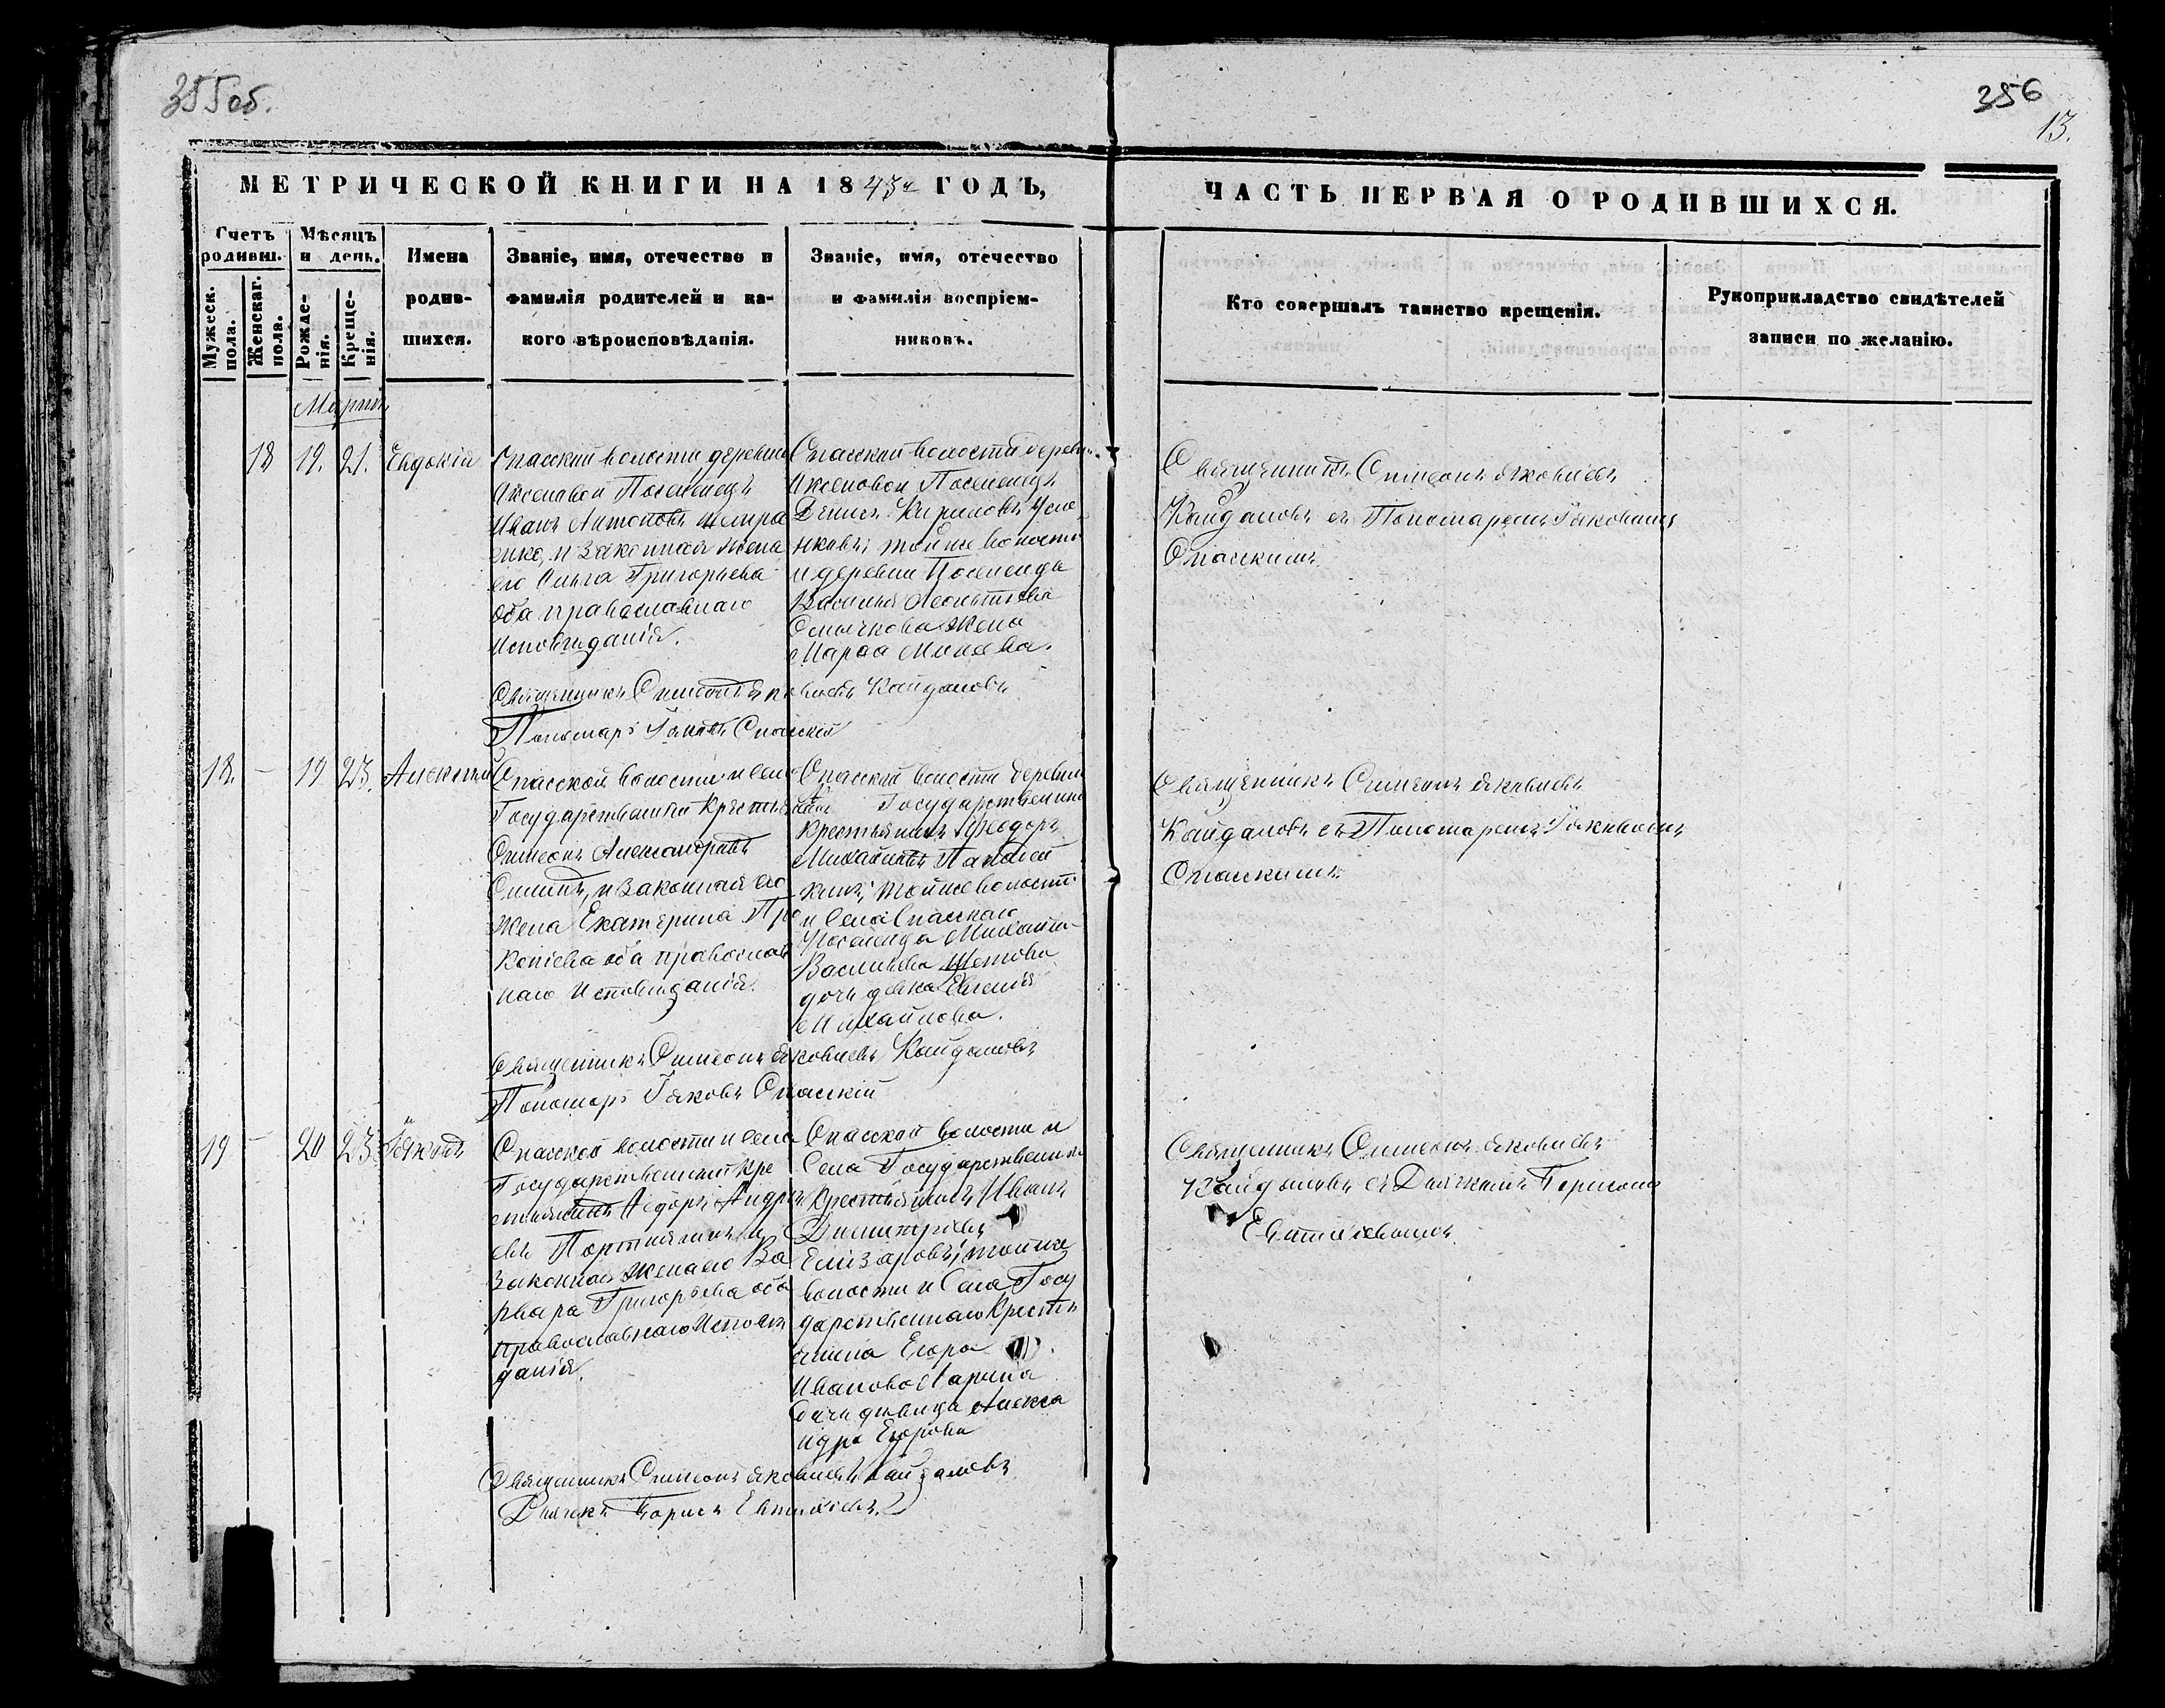 355 об.
356
13.
МЕТРИЧЕСКОЙ КНИГИ НА 1843й ГОДЪ,
ЧАСТЬ ПЕРВАЯ О РОДИВШИХСЯ.
Счетъ родивш.
Мужеск. пола.
Женскаг. пола.
Мѣсяцъ и день.
Рожденія.
Крещенія.
Имена родившихся.
Званіе, имя, отечество и фамилія родителей и какого вѣроисповѣданія.
Званіе, имя, отечество и фамилія воспріемниковъ.
Кто совершалъ таинство крещенія.
Рукоприкладство свидѣтелей записи по желанію.
Мартъ
18 19. 21. Евдокія
Спасской волости деревни
Аксеновой Поселенецъ
Иванъ Антоновъ
и законная жена
его Ольга Григорьева
оба православнаго
исповѣданія.
Спасской волости деревни
Аксеновой Поселенецъ
Денисъ Кириловъ
той же волости
и деревни Поселенца
Василья Леонтьева
жена
Марфа
Священникъ Симеонъ Яковлевъ
Кайдаловъ съ Пономаремъ Іаковомъ
Спасскимъ.
Священникъ Симеонъ Яковлевъ Кайдаловъ
Пономарь Іаковъ Спасскій
18. — 19 23. Алексѣй
Спасской волости и села
Государственный Крестьянинъ
Симеонъ Александровъ
и законная его
жена Екатерина Про
копіева оба православ
наго исповѣданія.
Спасской волости деревни
Государственный
Крестьянинъ Ѳеодоръ
Михайловъ
той же волости
и села Спасскаго
Поселенца Михаила
Васильева
дочь дѣвка Евгенія
Михайлова.
Священникъ Симеонъ Яковлевъ
Кайдаловъ съ Пономаремъ Іаковомъ
Спасскимъ.
Священникъ Симеонъ Яковлевъ Кайдаловъ
Пономарь Іаковъ Спасскій
19 — 20 23 Іаковъ
Спасской волости и села
Государственный Кре
стьянинъ Ѳедоръ Андре
евъ Портнягинъ и
законная жена его Ва
рвара Григорьева оба
православнаго исповѣ
данія.
Спасской волости и
села Государственный
Крестьянинъ Иванъ
Димитріевъ
Елизаровъ; той же
волости и села Госу
дарственнаго Кресть
янина Егора
Иванова Ларина
дочь дѣвица Алекса
ндра Егорова
Священникъ Симеонъ Яковлевъ
Кайдаловъ съ Дьячкомъ Борисомъ
Евтихіевымъ.
Священникъ Симеонъ Яковлевъ Кайдаловъ
Дьячекъ Борисъ Евтихіевъ.